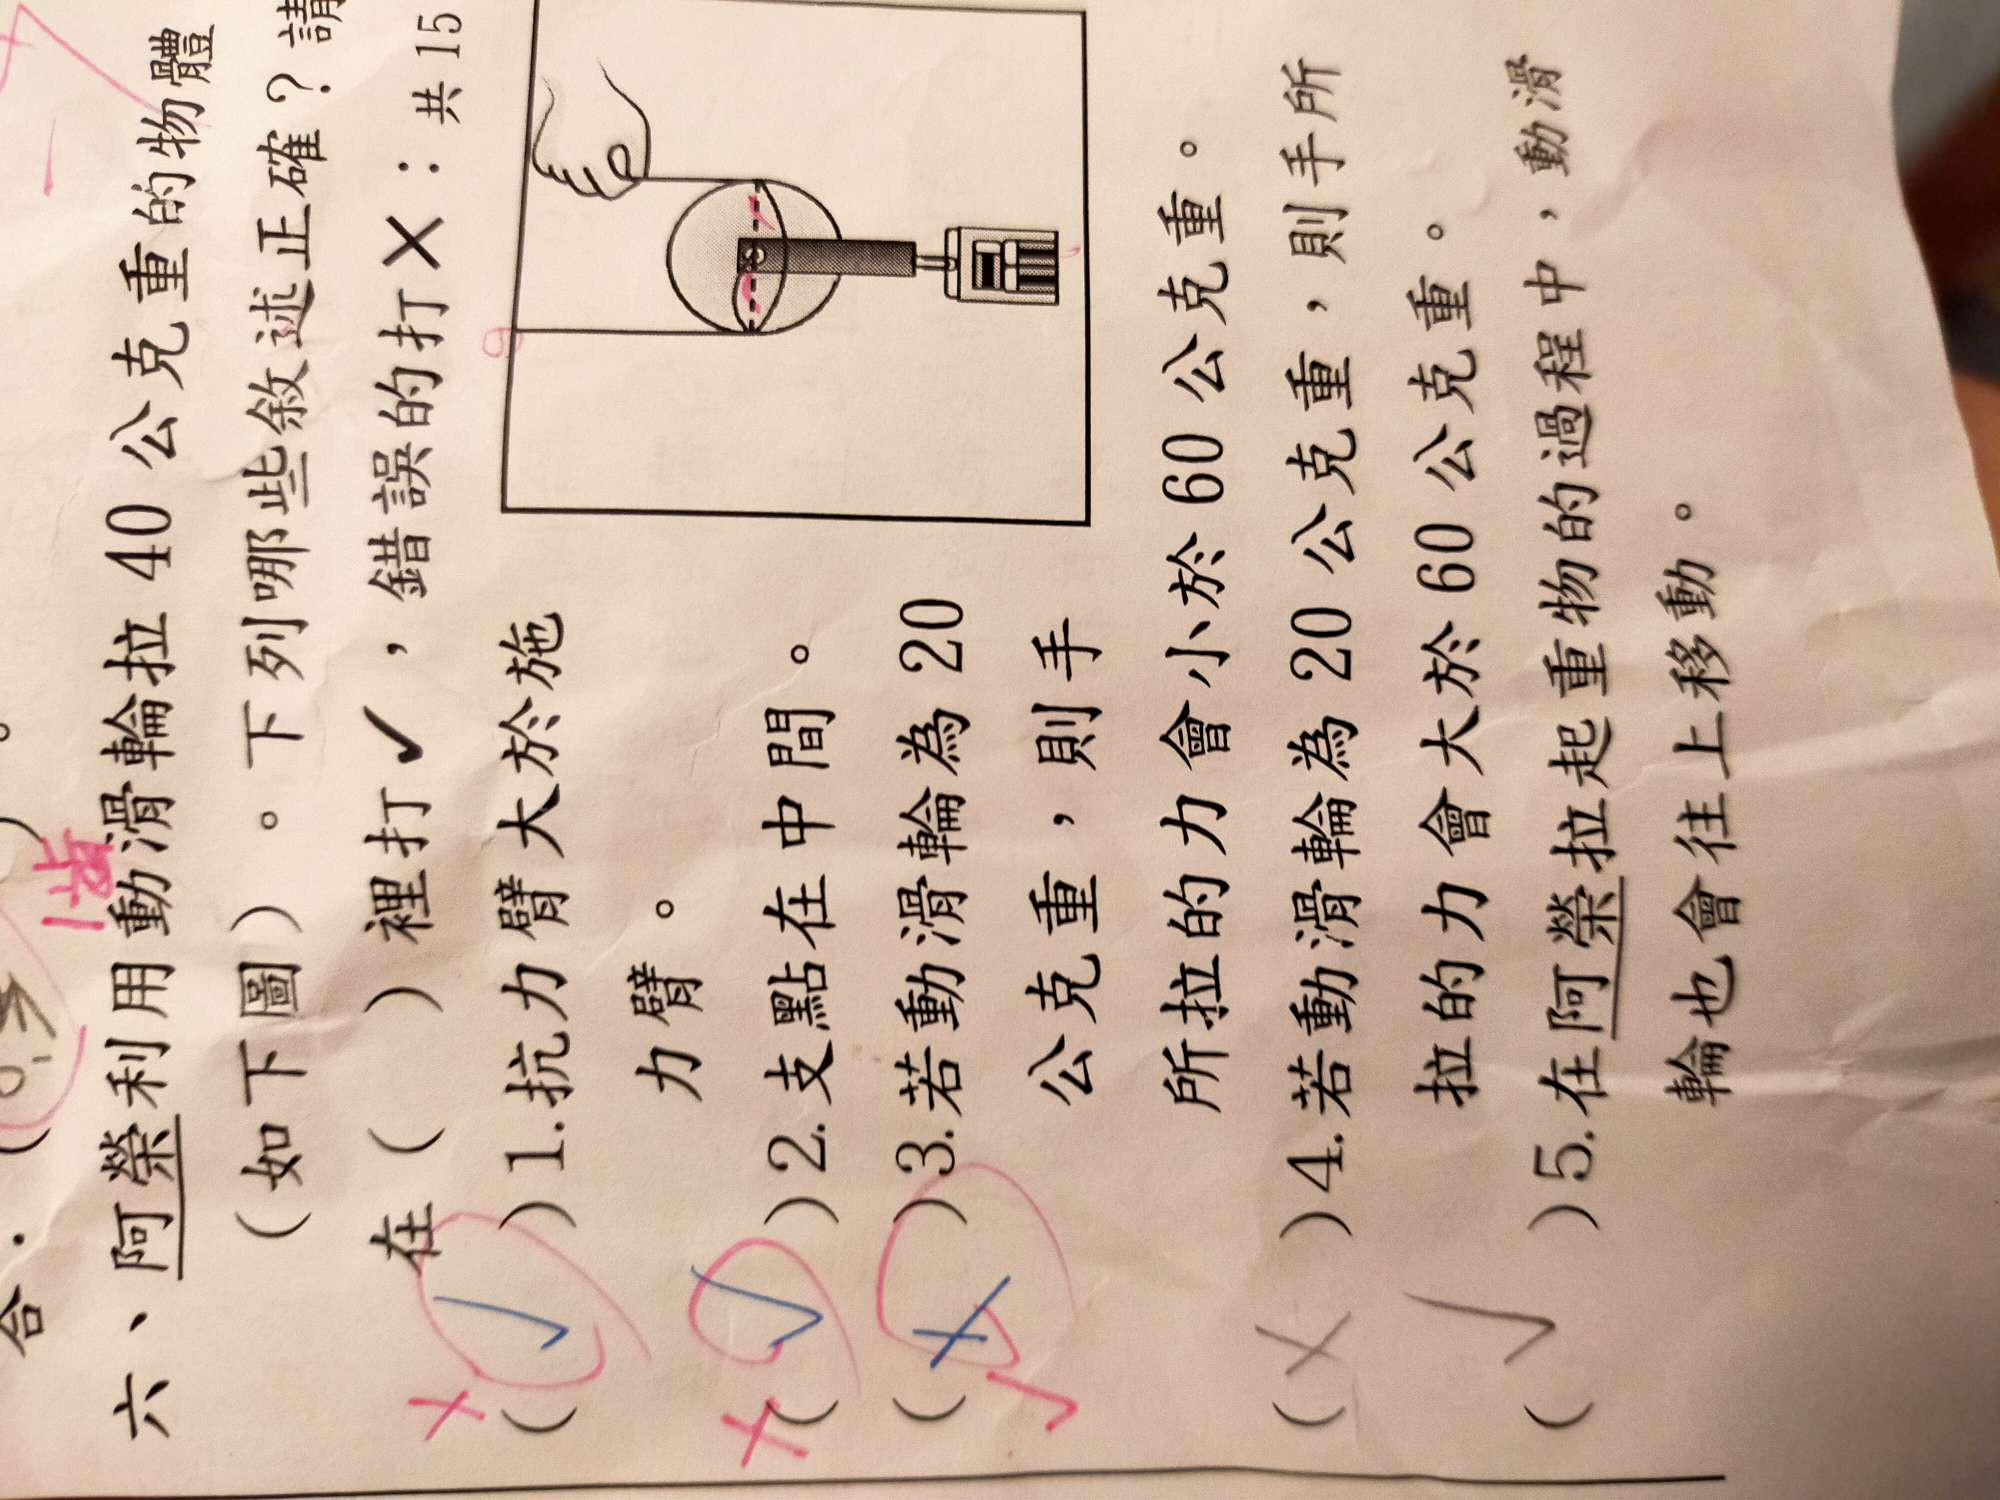 合.
六、阿榮利用動滑輪拉 40 公克重的物體
(如下圖)。下列哪些敘述正確?請
在( )裡打✓,錯誤的打✕:共 15
(✓)1.抗力臂大於施
力臂。
(✓)2.支點在中間。
(X)3.若動滑輪為 20
公克重,則手
所拉的力會小於 60 公克重。
(X)4.若動滑輪為 20 公克重,則手所
拉的力會大於 60 公克重。
(✓)5.在阿榮拉起重物的過程中,動滑
輪也會往上移動。